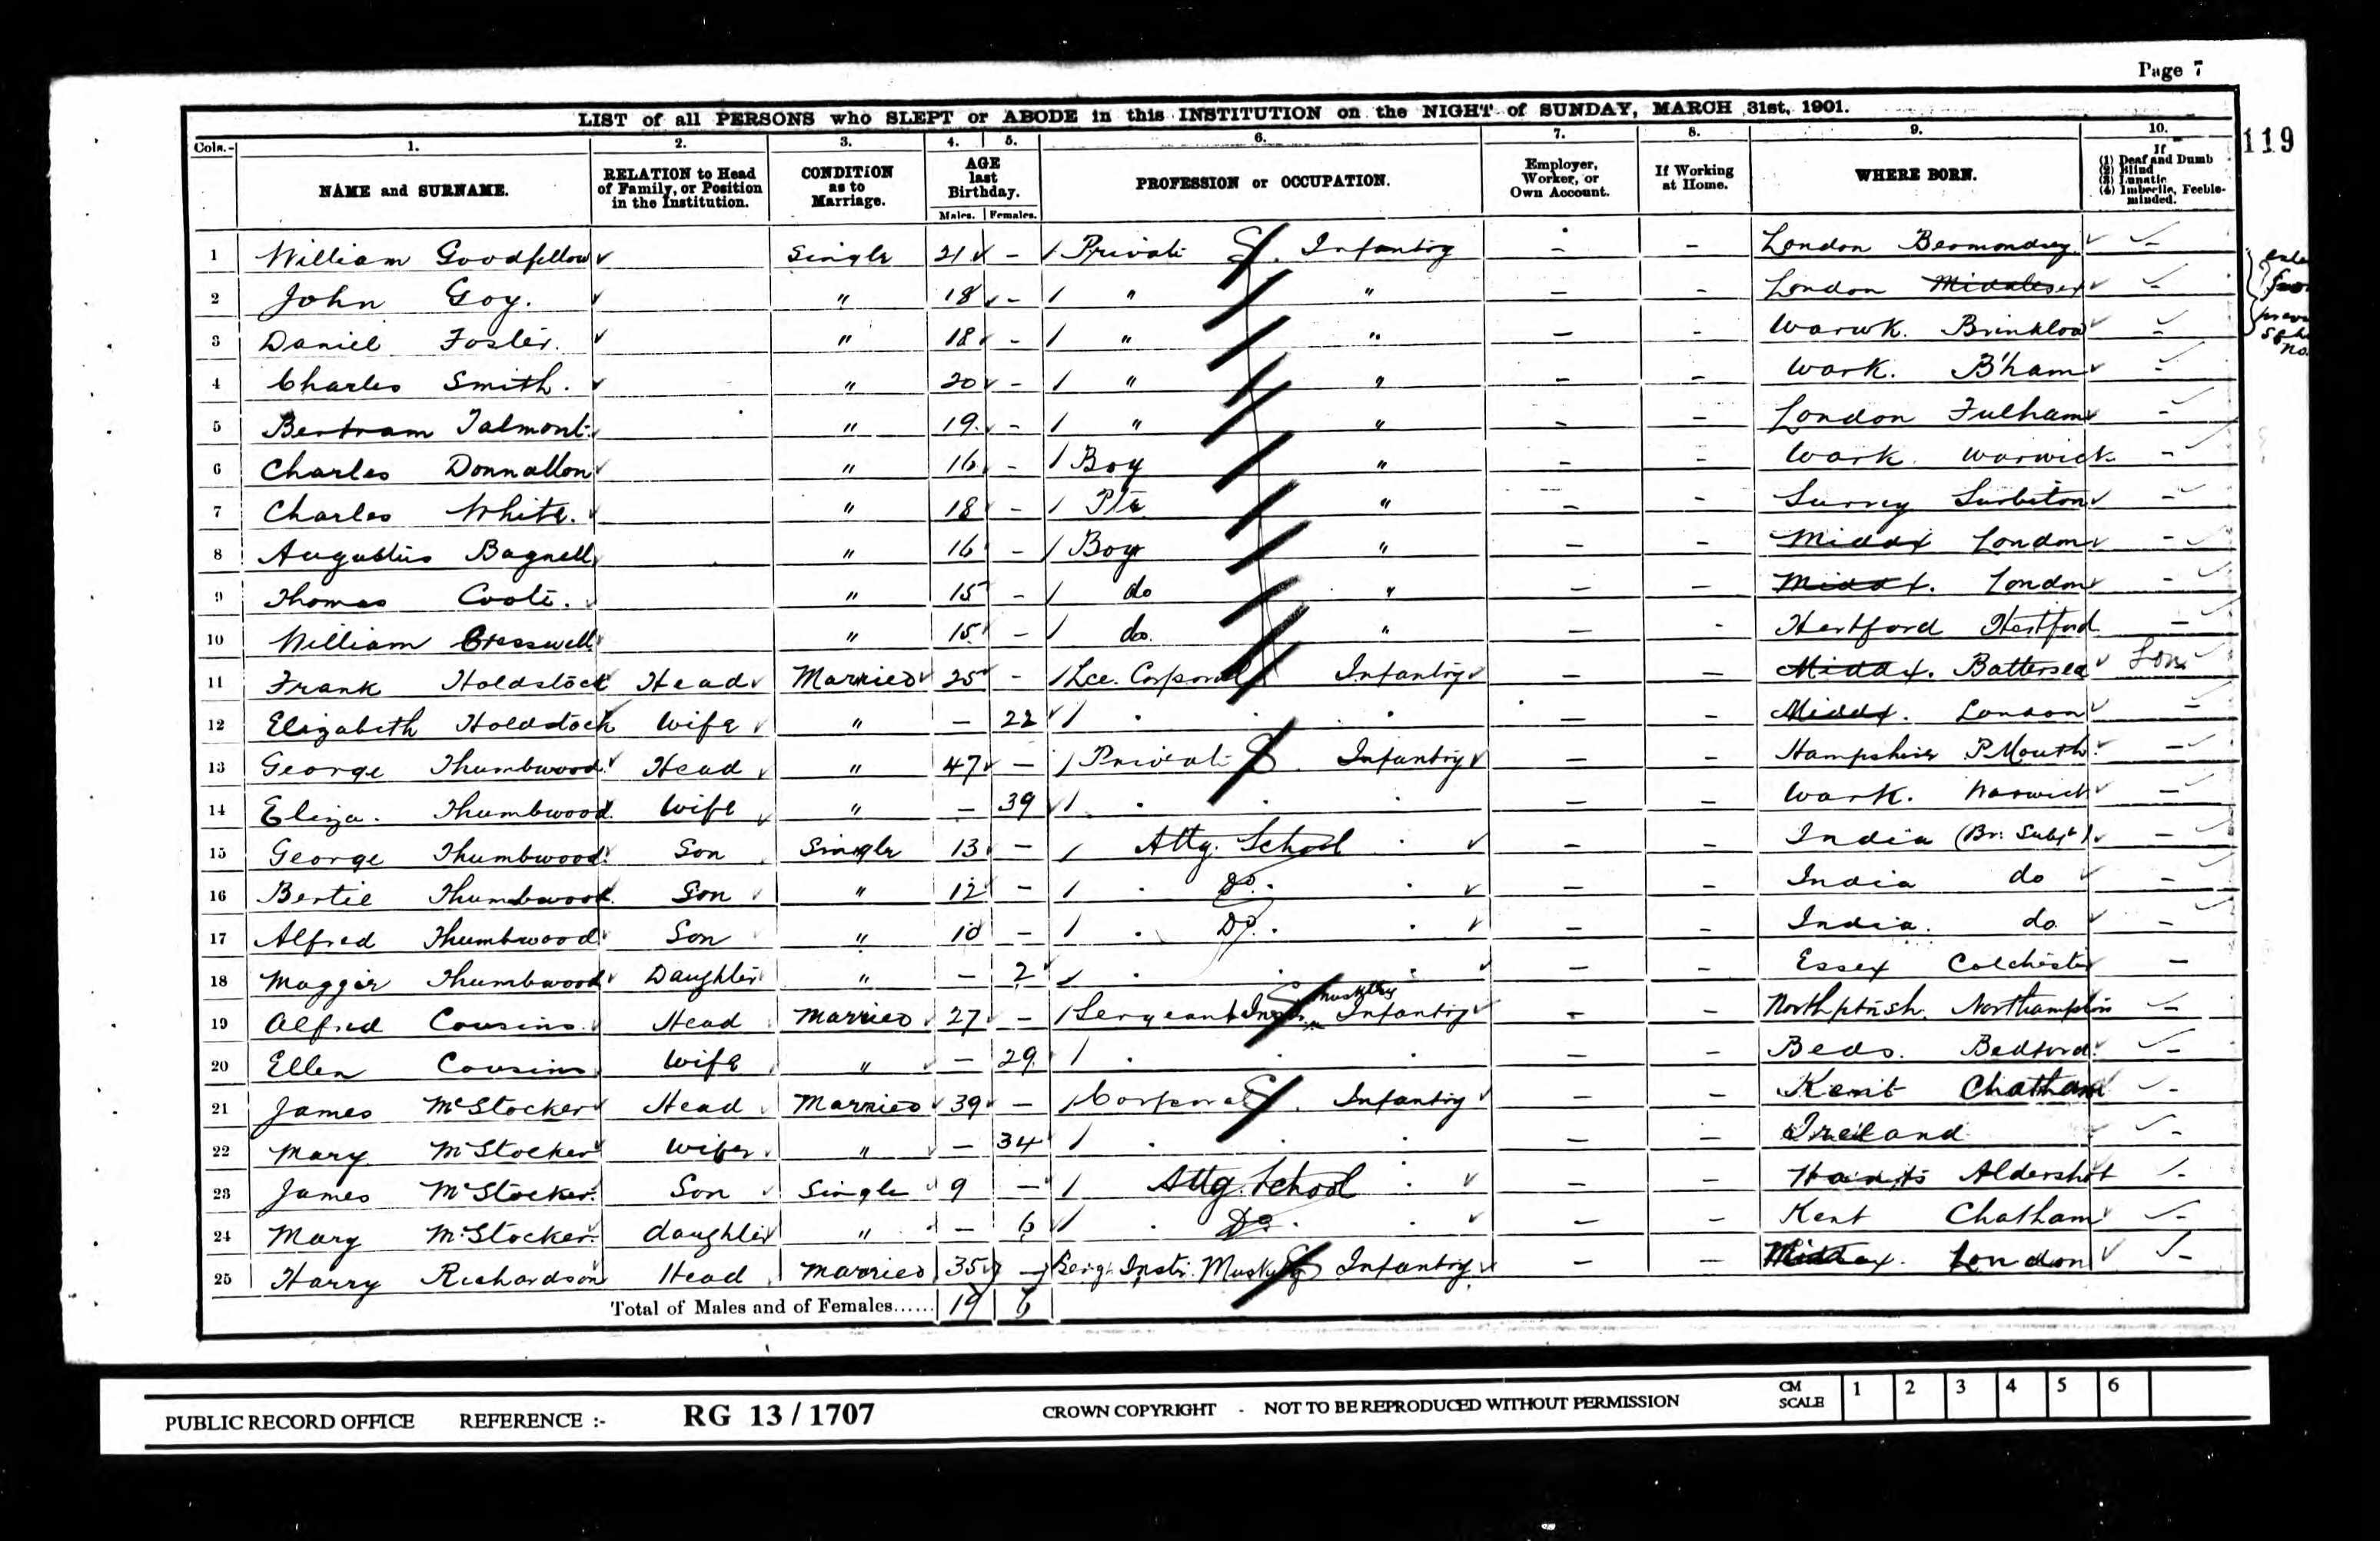 Page 7
LIST of all PERSONS who SLEPT or ABODE in this INSTITUTION on the NIGHT of SUNDAY, MARCH 31st, 1901.
119
Cols.- 1. 2. 3. 4. 5. 6. 7. 8. 9. 10.
NAME and SURNAME. RELATION to Head of Family, or Position in the Institution. CONDITION as to Marriage. AGE last Birthday. Males. Females. PROFESSION or OCCUPATION. Employer, Worker, or Own Account. If Working at Home. WHERE BORN. If (1) Deaf and Dumb (2) Blind (3) Lunatic (4) Imbecile, Feeble-minded.
1 William Goodfellow Single 21 - 1 Private Infantry - - London Bermondsey -
2 John Goy. " 18 - 1 " " - - London Middlesex -
3 Daniel Foster. " 18 - 1 " " - - Warwk. Brinklow -
4 Charles Smith. " 20 - 1 " " - - Wark. B'ham -
5 Bertram Talmont. " 19 - 1 " " - - London Fulham -
6 Charles Donnallon " 16 - 1 Boy " - - Wark. Warwick -
7 Charles White. " 18 - 1 Pte " - - Surrey Surbiton -
8 Augustus Bagnell " 16 - 1 Boy " - - Middx London -
9 Thomas Coote. " 15 - 1 do " - - Middx. London -
10 William Cresswell " 15 - 1 do. " - - Hertford Hertford -
11 Frank Holdstock Head Married 25 - 1 Lce. Corporal Infantry - - Middx. Battersea Lon
12 Elizabeth Holdstock Wife " - 22 1 - - Middx. London -
13 George Thumbwood Head " 47 - 1 Private Infantry - - Hampshire P.Mouth -
14 Eliza. Thumbwood Wife " - 39 1 - - Wark. Warwick -
15 George Thumbwood Son Single 13 - 1 Attg. School - - India (Br: Subjt) -
16 Bertie Thumbwood Son " 12 - 1 Do. - - India do -
17 Alfred Thumbwood Son " 10 - 1 Do. - - India. do. -
18 Maggie Thumbwood Daughter " - 2 1 - - Essex Colchester -
19 Alfred Cousins. Head Married 27 - 1 Sergeant Instr Musketry Infantry - - Northptnsh. Northampton -
20 Ellen Cousins Wife " - 29 1 - - Beds. Bedford. -
21 James McStocker Head Married 39 - 1 Corporal Infantry - - Kent Chatham -
22 Mary McStocker Wife " - 34 1 - - Ireland -
23 James McStocker. Son Single 9 - 1 Attg. School - - Hants Aldershot -
24 Mary McStocker. daughter " - 6 1 Do. - - Kent Chatham -
25 Harry Richardson Head Married 35 - 1 Sergt. Instr. Musktry Infantry - - Middsex. London -
Total of Males and of Females...... 19 6
PUBLIC RECORD OFFICE REFERENCE :- RG 13 / 1707 CROWN COPYRIGHT - NOT TO BE REPRODUCED WITHOUT PERMISSION CM SCALE 1 2 3 4 5 6